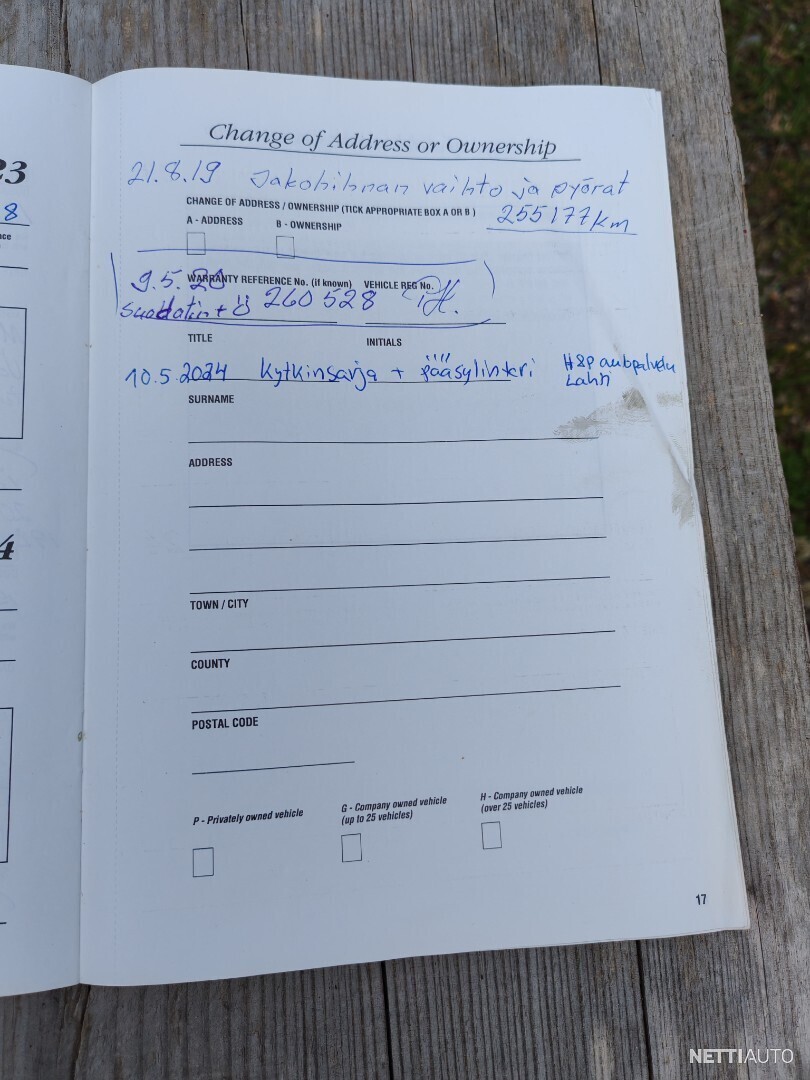 23
8
nce
4
Change of Address or Ownership
21.8.19 Jakohihnan vaihto ja pyörat
255177km
CHANGE OF ADDRESS / OWNERSHIP (TICK APPROPRIATE BOX A OR B )
A - ADDRESS B - OWNERSHIP
WARRANTY REFERENCE No. (if known) VEHICLE REG No.
9.5.20
Suodatin + Ö 260 528
TITLE INITIALS
10.5.2024 Kytkinsarja + pääsylinteri H&P autopalvelu
Lahti
SURNAME
ADDRESS
TOWN / CITY
COUNTY
POSTAL CODE
P - Privately owned vehicle
G - Company owned vehicle
(up to 25 vehicles)
H - Company owned vehicle
(over 25 vehicles)
17
NETTIAUTO